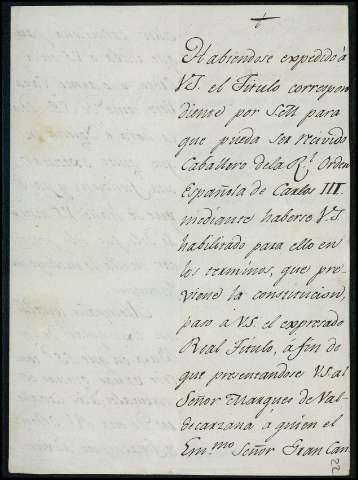 Habiendose expedido à
V.S. el Titulo correspon
diente por S.M. para
que pueda ser recivido
Caballero de la Rl. Orden
Española de Carlos III.
mediante haberse V.S.
habilitado para ello en
los terminos, que pre-
viene la constitucion,
paso à V.S. el expresado
Real Titulo, a fin de
que presentandose V.S. al
Señor Marques de Val-
decarzana à quien el
Em.mo Señor Gran Can
22